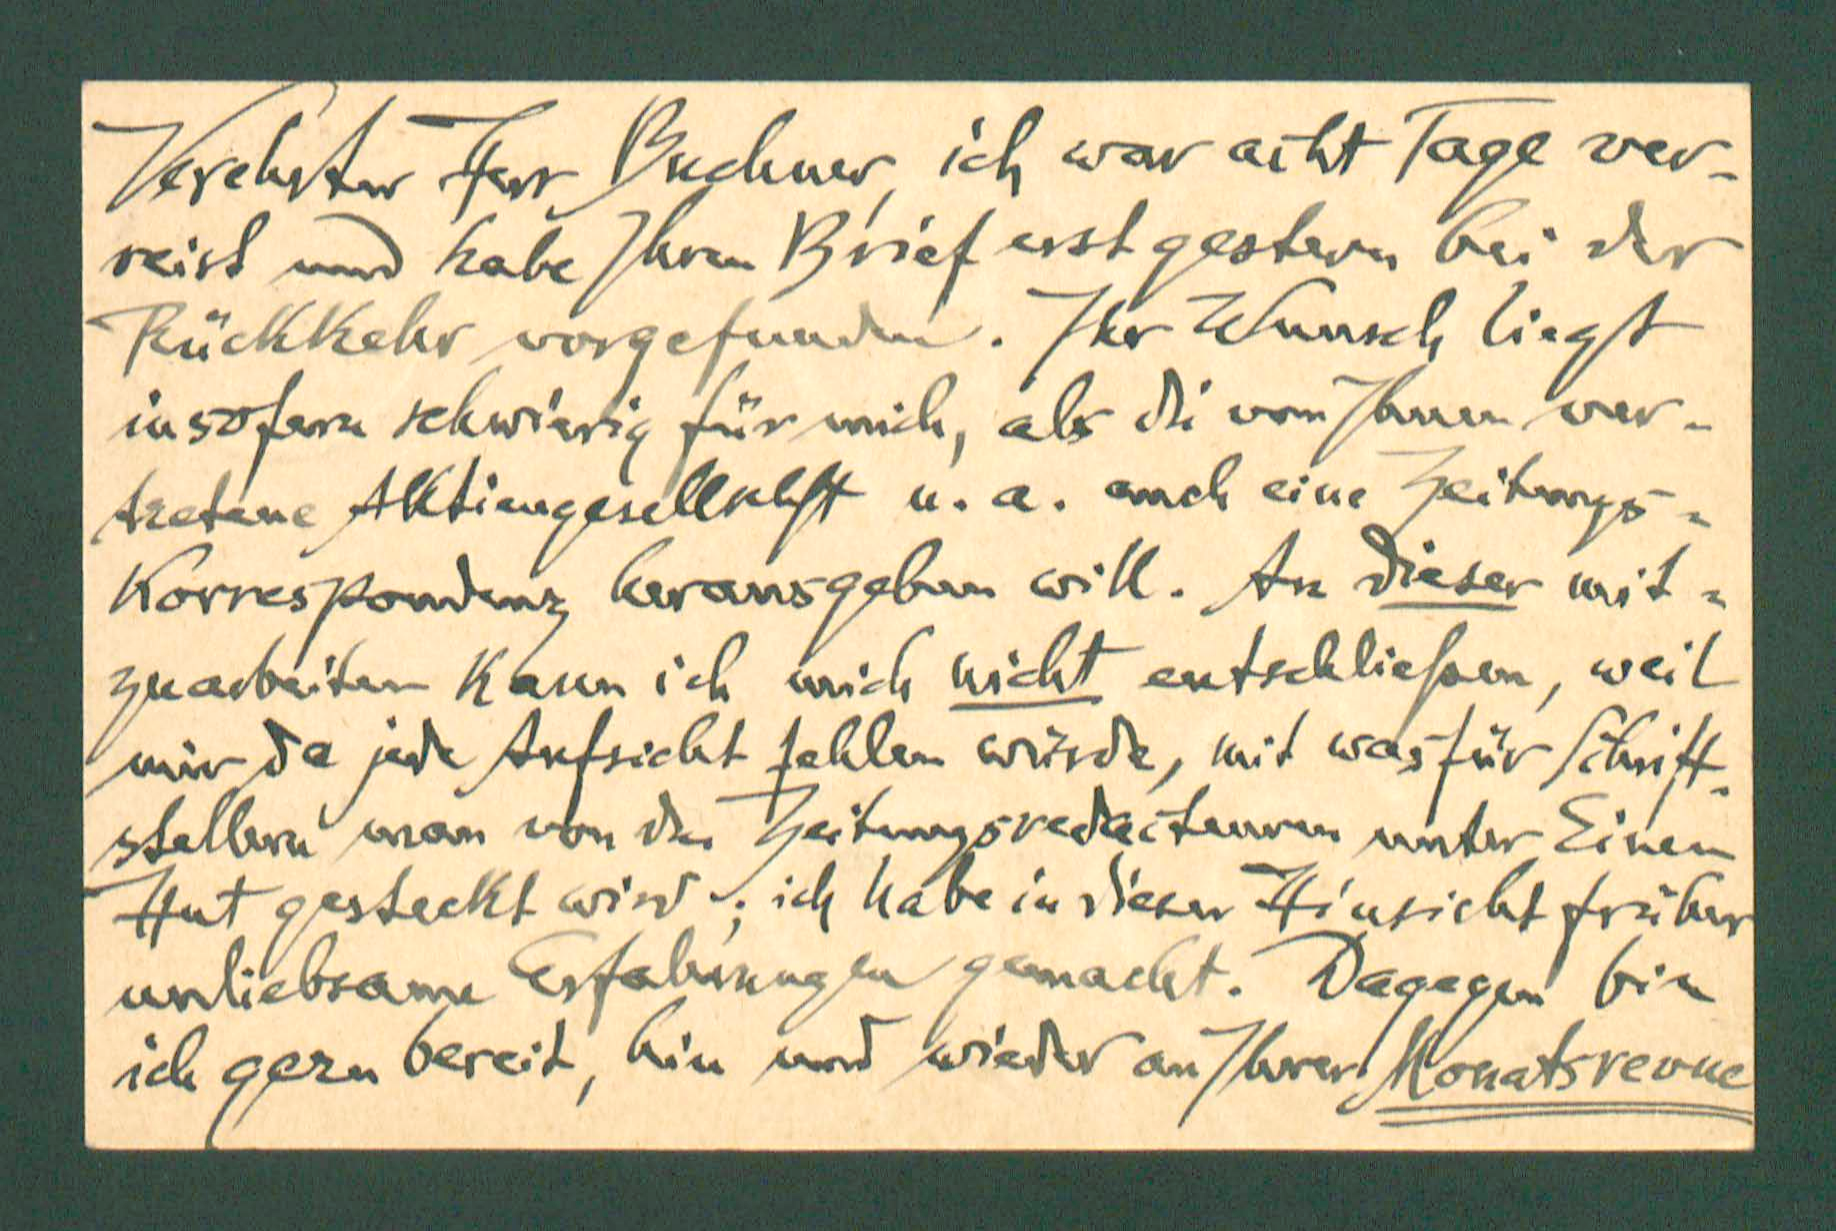 Verehrter Herr Buchner, ich war acht Tage ver-
reist und habe Ihren Brief erst gestern bei der
Rückkehr vorgefunden. Ihr Wunsch liegt
insofern schwierig für mich, als die von Ihnen ver-
tretene Aktiengesellschaft u. a. auch eine Zeitungs-
Korrespondenz herausgeben will. An dieser mit-
zuarbeiten kann ich mich nicht entschließen, weil
mir da jede Aufsicht fehlen würde, mit was für Schrift-
stellern man von den Zeitungsredacteuren unter Einen
Hut gesteckt wird; ich habe in dieser Hinsicht früher
unliebsame Erfahrungen gemacht. Dagegen bin
ich gern bereit, hin und wieder an Ihrer Monatsrevue